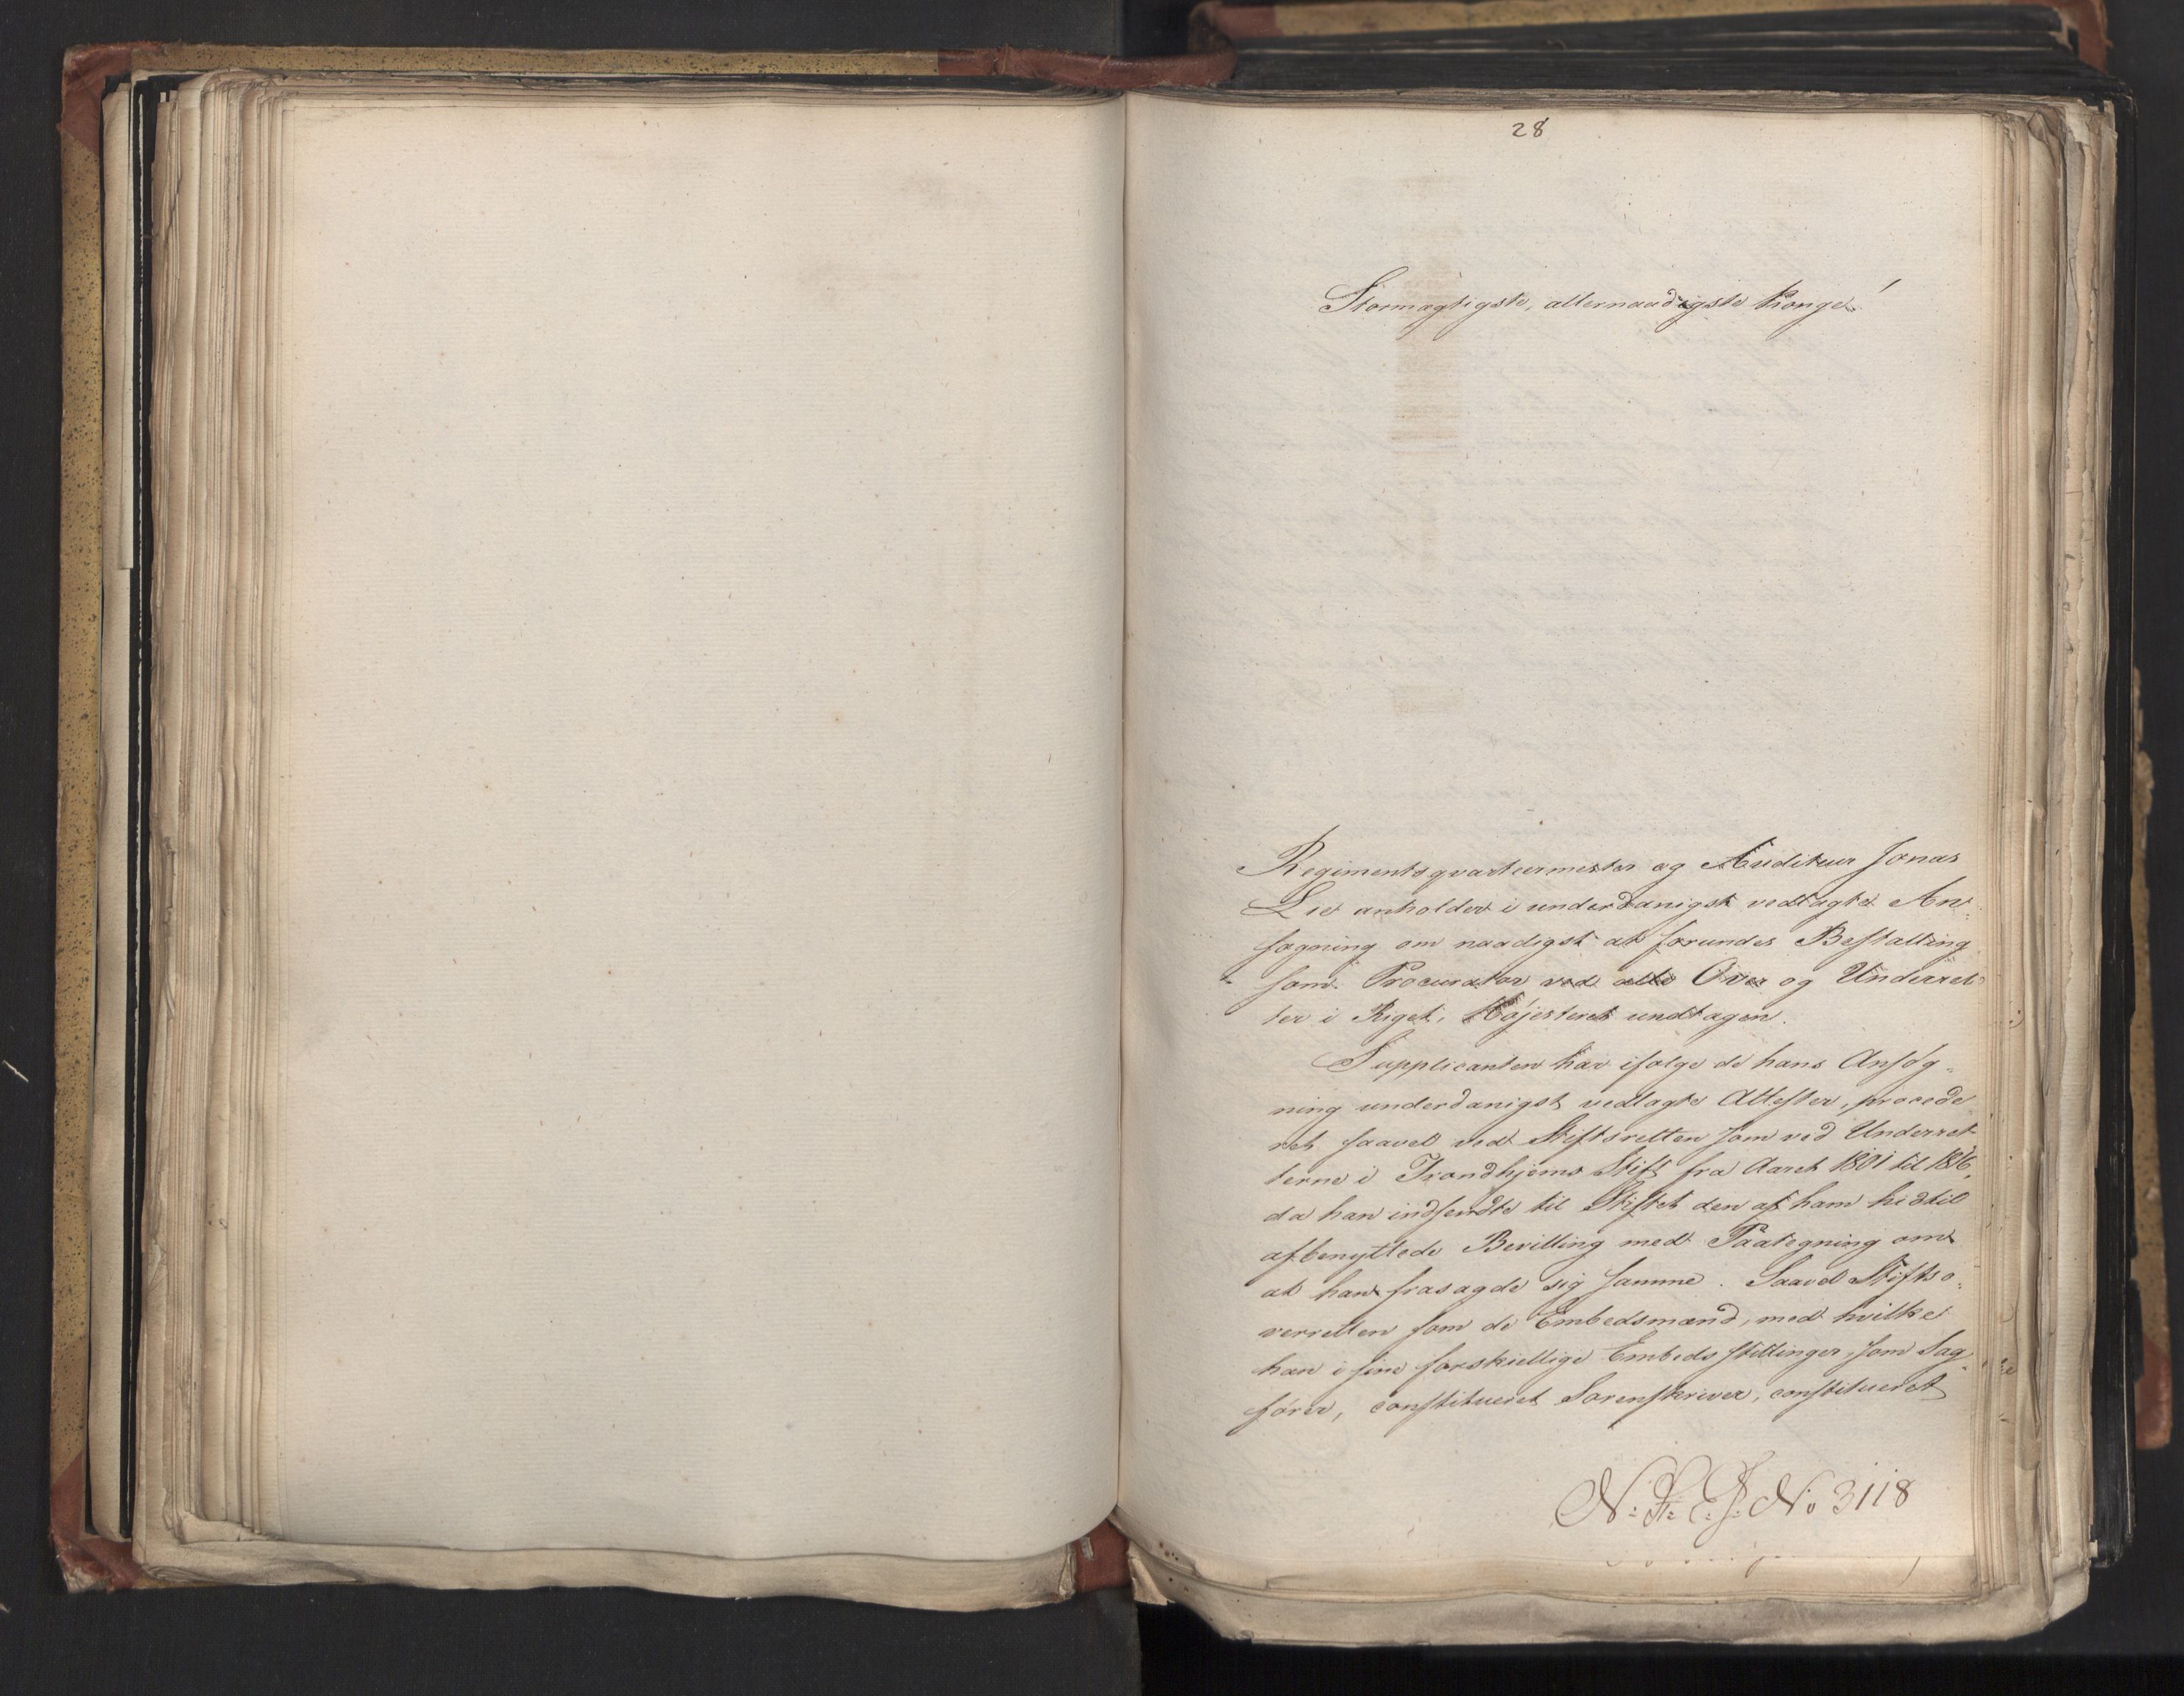 28
Stormægtigste, allernaadigste Konge!
Regimentsqvarteermester og Auditeur Jonas
Lie anholder i underdanigst vedlagte An-
søgning om naadigst at forundes Bestalling
som Procurator ved alle Over og Underret-
ter i Riget, Højesteret undtagen.
Supplicanten har ifølge de hans Ansøg-
ning underdanigst vedlagte Attester, procede-
ret saavel ved Stiftsretten som ved Underret-
terne i Trondhjems Stift fra Aaret 1801 til 1816,
da han indsendte til Stiftet den af ham hidtil
afbenyttede Bevilling med Paategning om
at han frasagde sig samme. Saavel Stiftso-
verretten som de Embedsmænd, med hvilke
han i sine forskiellige Embedsstillinger, som Sag-
fører, constitueret Sorenskriver, constitueret
No 3118